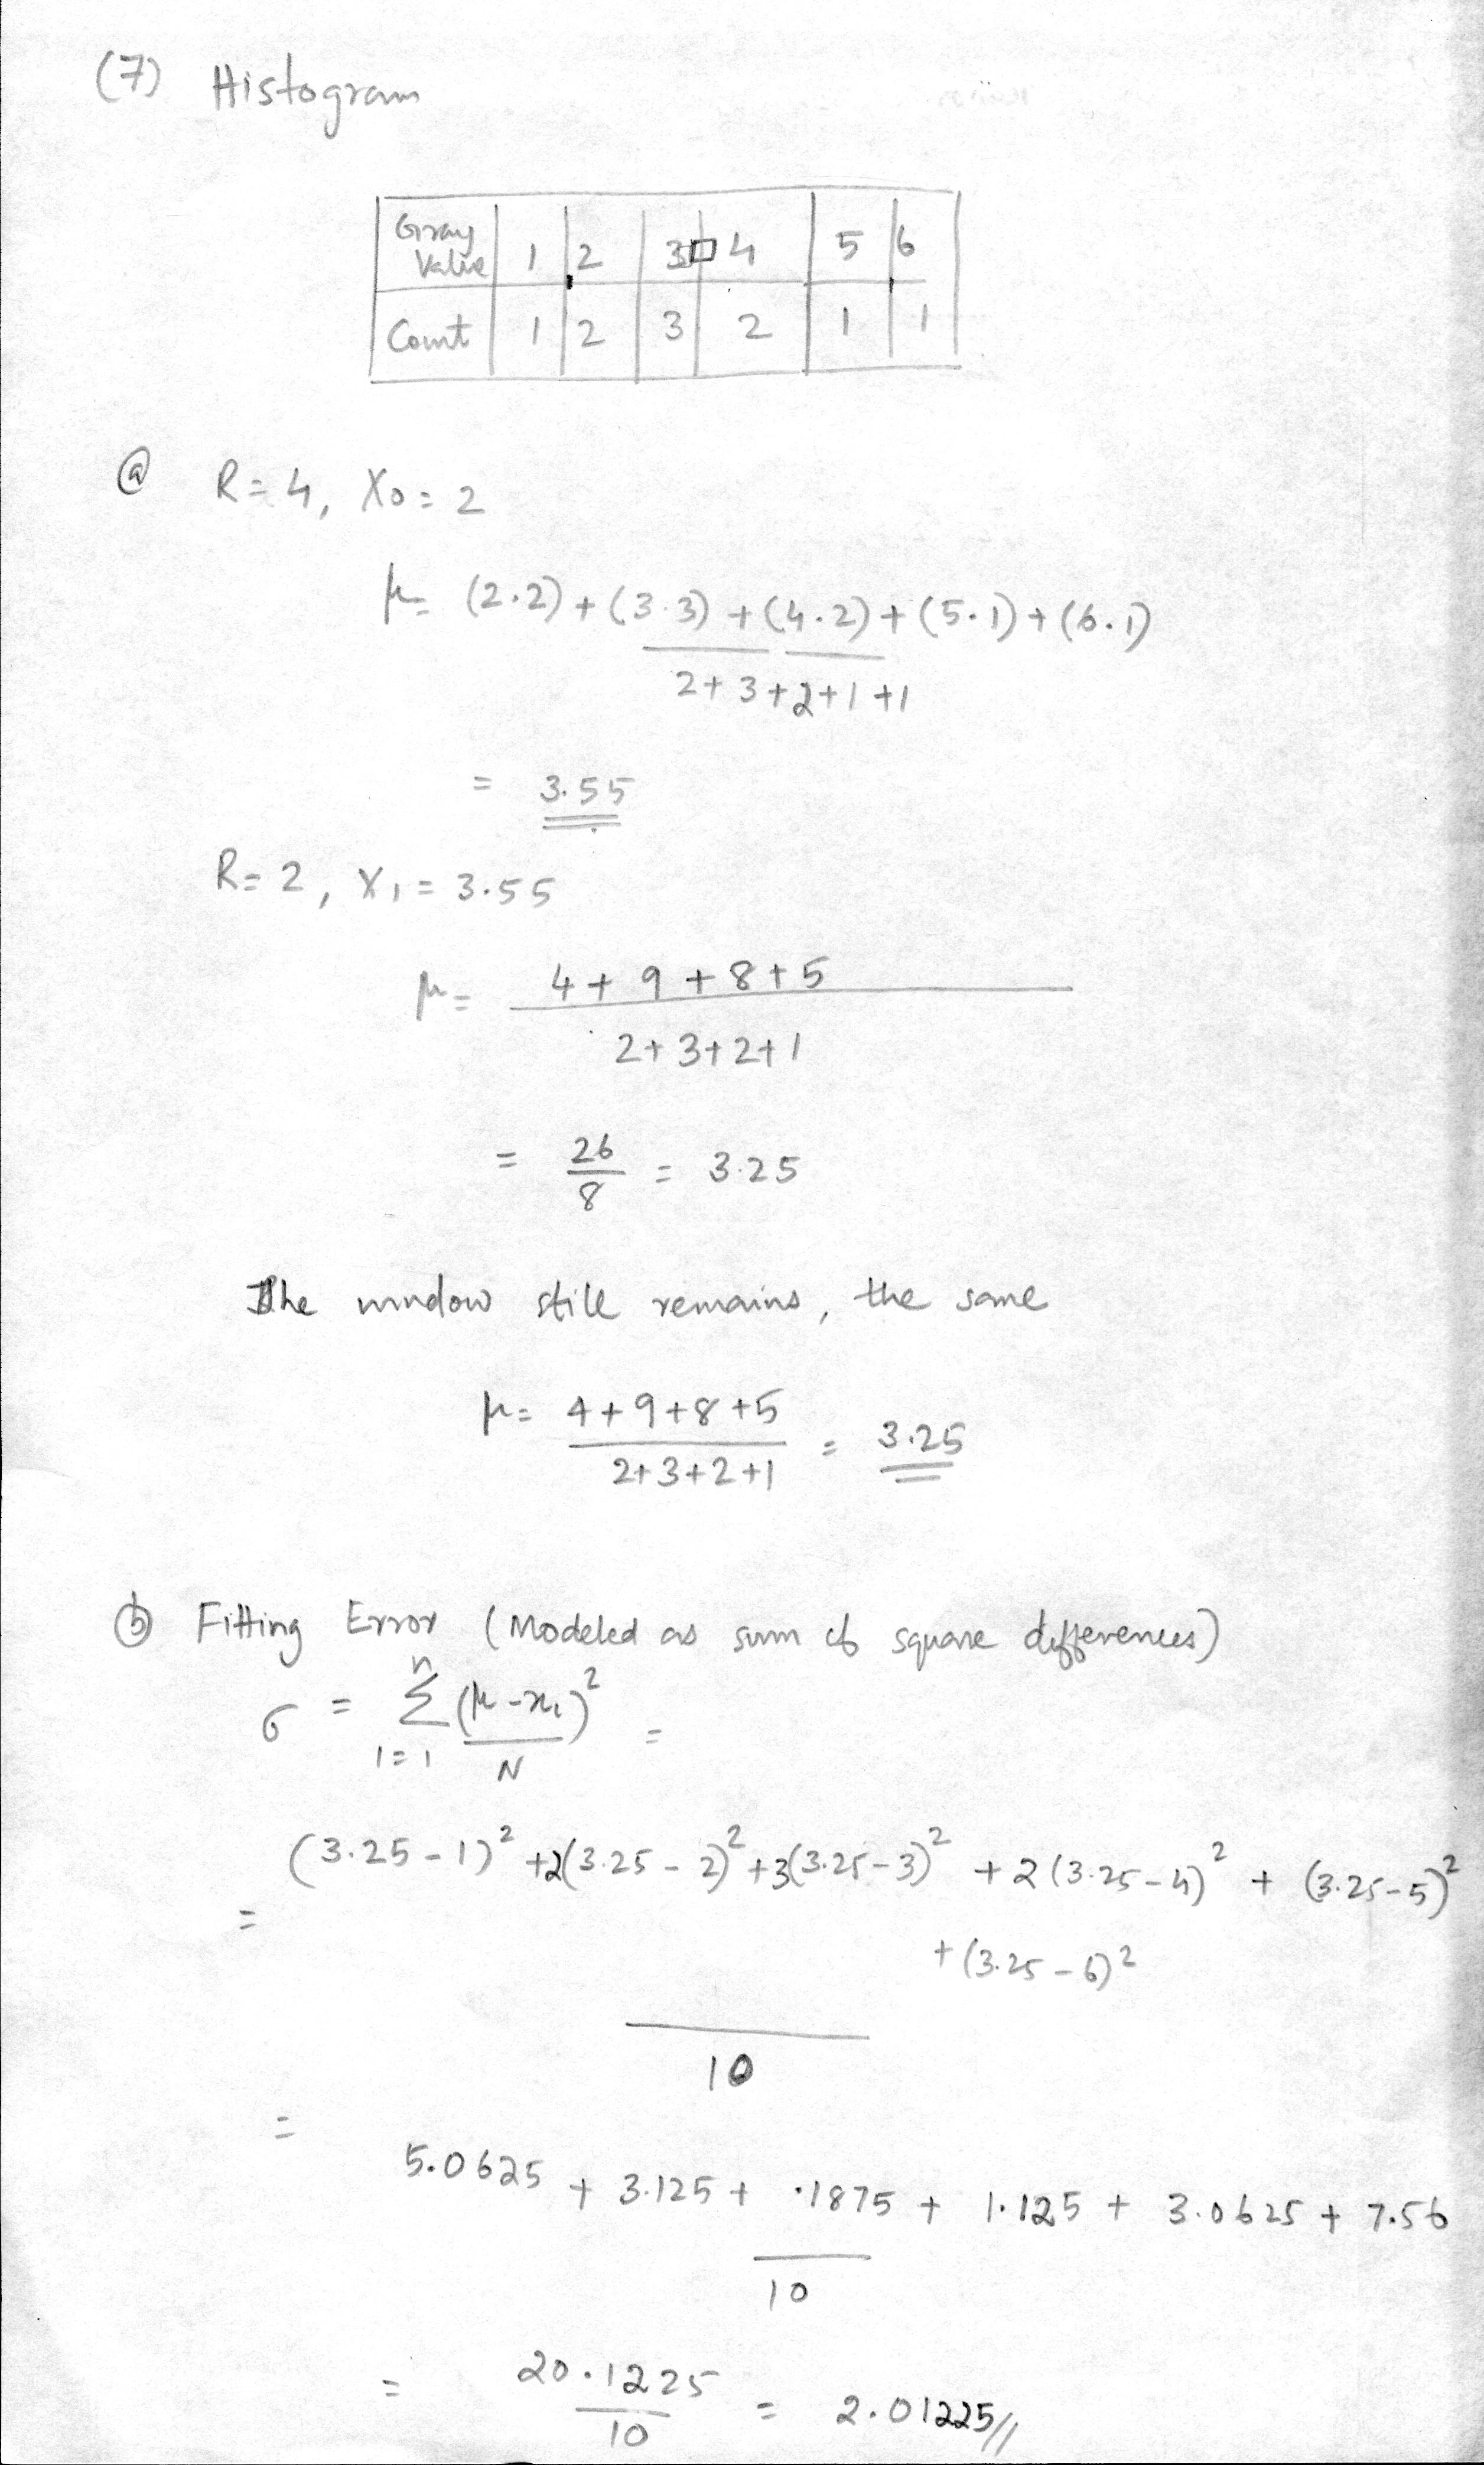 (7) Histogram
Gray Value 1 2 3 4 5 6
Count 1 2 3 2 1 1
(a) R = 4, X0 = 2
μ = (2.2) + (3.3) + (4.2) + (5.1) + (6.1)
2 + 3 + 2 + 1 + 1
= 3.55
R = 2, X1 = 3.55
μ = 4 + 9 + 8 + 5
2 + 3 + 2 + 1
= 26/8 = 3.25
The window still remains, the same
μ = 4 + 9 + 8 + 5
2 + 3 + 2 + 1
= 3.25
(b) Fitting Error (Modeled as sum of square differences)
σ = Σ (μ - xi)² =
n
i = 1
N
= (3.25 - 1)² + 2(3.25 - 2)² + 3(3.25 - 3)² + 2(3.25 - 4)² + (3.25 - 5)²
+ (3.25 - 6)²
10
= 5.0625 + 3.125 + .1875 + 1.125 + 3.0625 + 7.56
10
= 20.1225/10 = 2.01225//